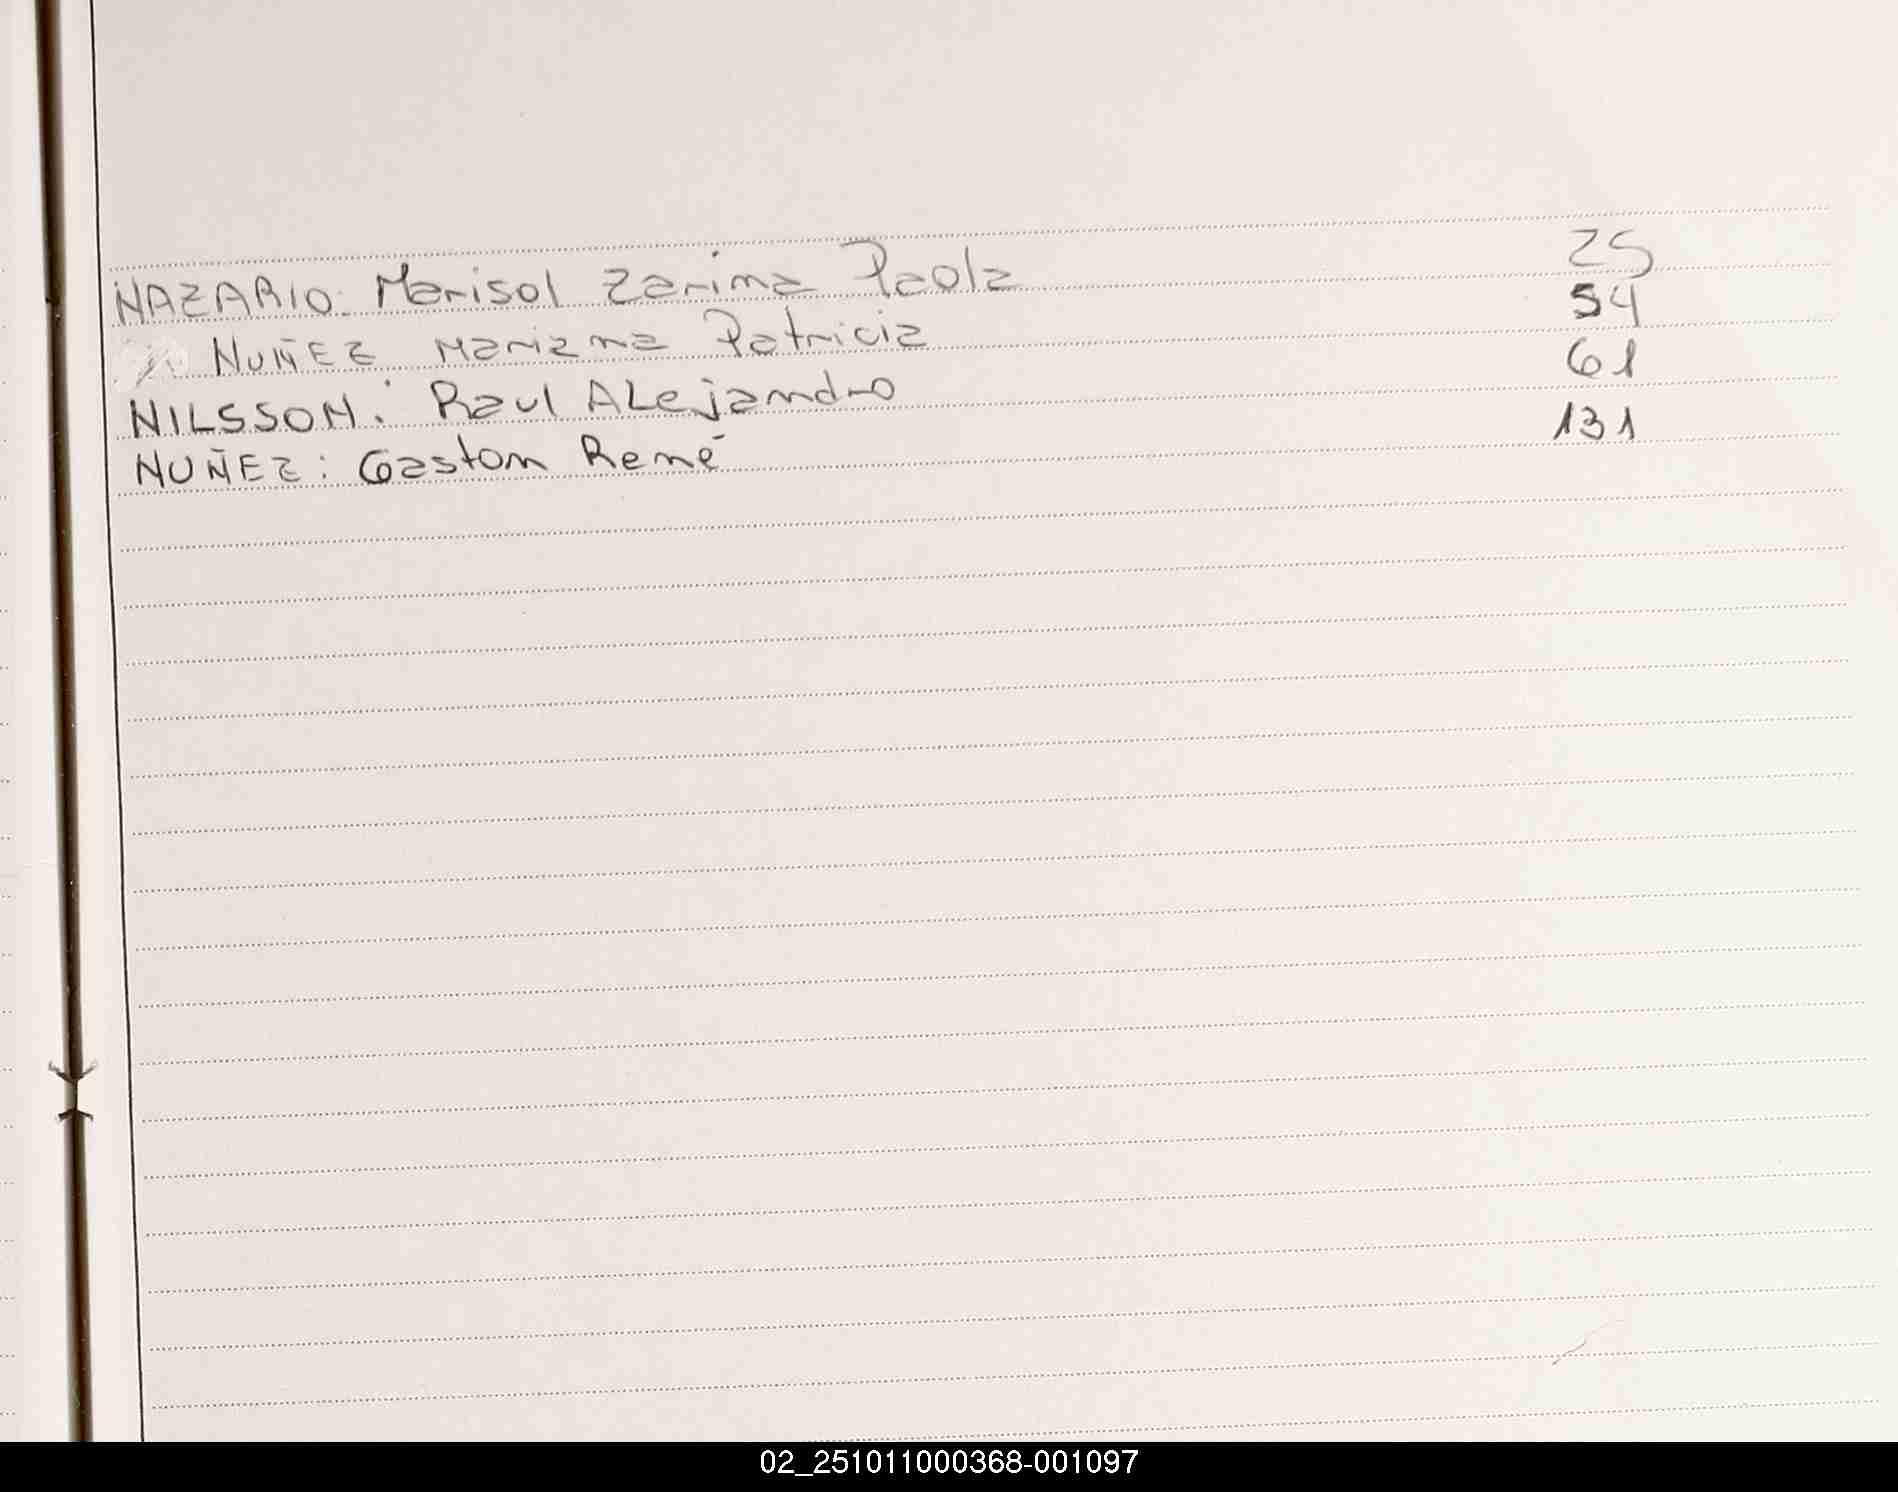 NAZARIO: Marisol Zarima Paola 25
NUÑEZ Mariana Patricia 54
NILSSON: Raul ALejandro 61
NUÑEZ: Gaston René 131
02_251011000368-001097